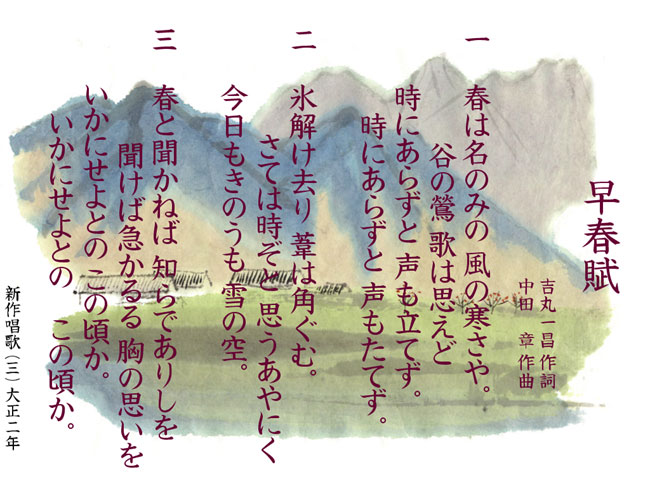 早春賦
吉丸一昌 作詞
中田 章 作曲
一
春は名のみの 風の寒さや。
谷の鶯 歌は思えど
時にあらずと 声も立てず。
時にあらずと 声もたてず。
二
氷解け去り 葦は角ぐむ。
さては時ぞと 思うあやにく
今日もきのうも 雪の空。
三
春と聞かねば 知らでありしを
聞けば急かるる 胸の思いを
いかにせよとの この頃か。
いかにせよとの この頃か。
新作唱歌(三)大正二年